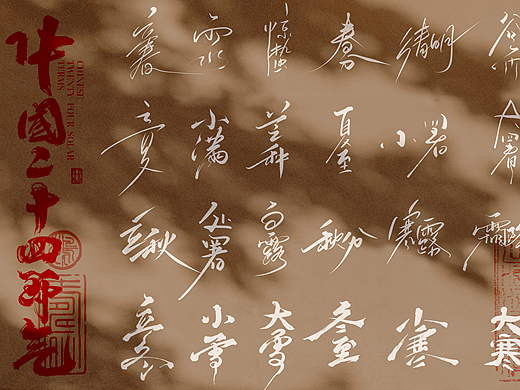 中国二十四节气
CHINESE
TWENTY-FOUR SOLAR
TERMS
立春 雨水 惊蛰 春分 清明 谷雨
立夏 小满 芒种 夏至 小暑 大暑
立秋 处暑 白露 秋分 寒露 霜降
立冬 小雪 大雪 冬至 小寒 大寒